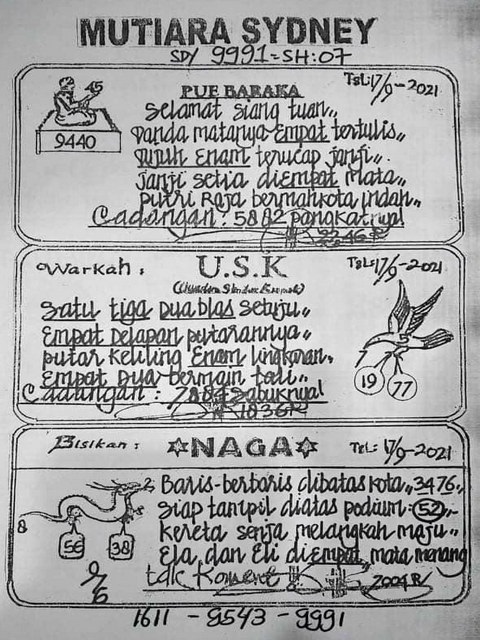 MUTIARA SYDNEY
SDY 9991=SH:07
PUE BARAKA
TSL:17/9-2021
9440
Selamat siang tuan,,
Panda matanya empat tertulis,,
Tujuh Enam terucap janji,,.
Janji setia diempat mata,,
putri Raja bermahkota indah,,
Cadangan: 5882 pangkatnya!
Warkah:
U.S.K
TSL:17/9-2021
satu tiga Dua blas setuju,,
Empat Delapan putarannya,,
putar keliling Enam lingkaran,
Empat Dua bermain tali,,
Cadangan: 7884 Sabuknya!
1836R
19 77
Bisikan:
NAGA
TSL: 17/9-2021
Baris-bertaris dibatas kota,, 3476,,
Siap tampil diatas podium (52),,
Kereta senja melangkah maju,,
Ela, dan Eli diempat mata menang
tdk Koment
2004R
8
56 38
9/6
1611 - 8543 - 9991